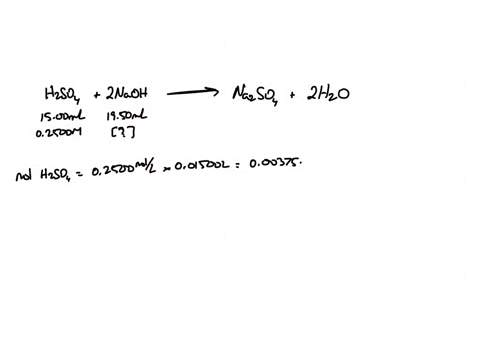 H₂SO₄ + 2NaOH ⟶ Na₂SO₄ + 2H₂O
15.00mL 19.50mL
0.2500M [?]
mol H₂SO₄ = 0.2500 mol/L × 0.01500L = 0.00375.